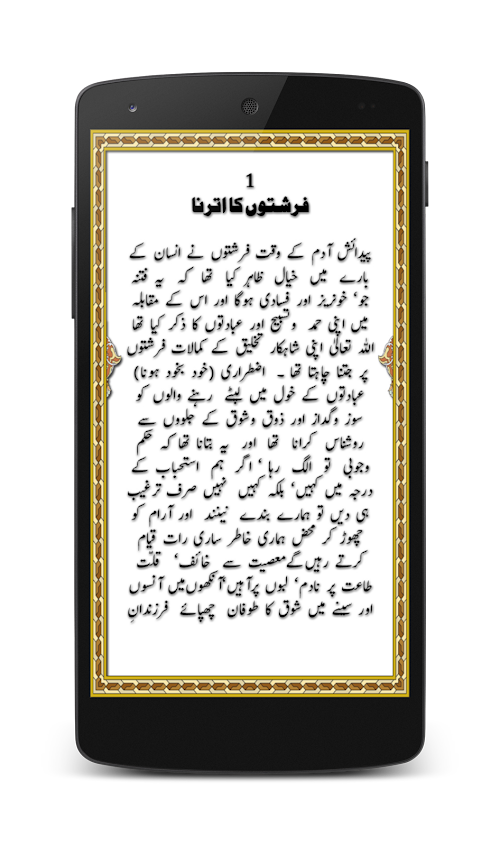 1
فرشتوں کا اترنا
پیدائش آدم کے وقت فرشتوں نے انسان کے
بارے میں خیال ظاہر کیا تھا کہ یہ فتنہ
جو‘ خونریز اور فسادی ہوگا اور اس کے مقابلہ
میں اپنی حمد وتسبیح اور عبادتوں کا ذکر کیا تھا
اللہ تعالیٰ اپنی شاہکار تخلیق کے کمالات فرشتوں
پر جتنا چاہتا تھا ۔ اضطراری (خود بخود ہونا)
عبادتوں کے خول میں لپٹے رہنے والوں کو
سوز وگداز اور ذوق وشوق کے جلووں سے
روشناس کرانا تھا اور یہ بتانا تھا کہ حکم
وجوبی تو الگ رہا‘ اگر ہم استحباب کے
درجہ میں کہیں‘ بلکہ کہیں نہیں صرف ترغیب
ہی دیں تو ہمارے بندے نیند اور آرام کو
چھوڑ کر محض ہماری خاطر ساری رات قیام
کرتے رہیں گے معصیت سے خائف‘ قلّت
طاعت پر نادم‘ لبوں پر آہیں‘ آنکھوں میں آنسوں
اور سینے میں شوق کا طوفان چھپائے فرزندانِ